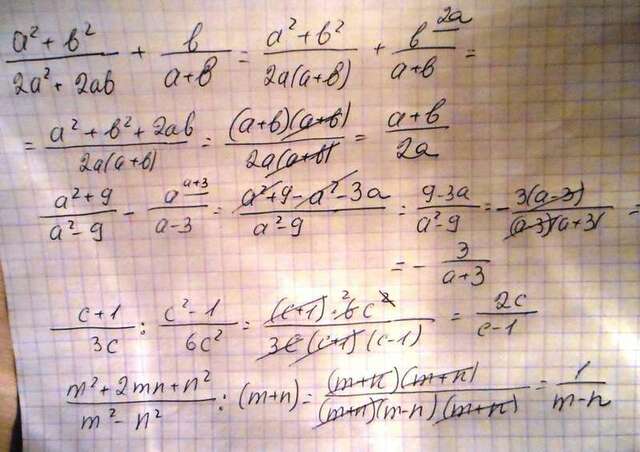 (a² + b²)/(2a² + 2ab) + b/(a+b) = (a² + b²)/(2a(a+b)) + b^{2a}/(a+b) =
= (a² + b² + 2ab)/(2a(a+b)) = (a+b)(a+b)/(2a(a+b)) = (a+b)/(2a)
(a²+9)/(a²-9) - a^{a+3}/(a-3) = (a²+9-a²-3a)/(a²-9) = (9-3a)/(a²-9) = -3(a-3)/((a-3)(a+3)) =
= - 3/(a+3)
(c+1)/(3c) : (c²-1)/(6c²) = ((c+1)·²6c²)/(3c(c+1)(c-1)) = 2c/(c-1)
(m²+2mn+n²)/(m²-n²) : (m+n) = (m+n)(m+n)/((m+n)(m-n)(m+n)) = 1/(m-n)